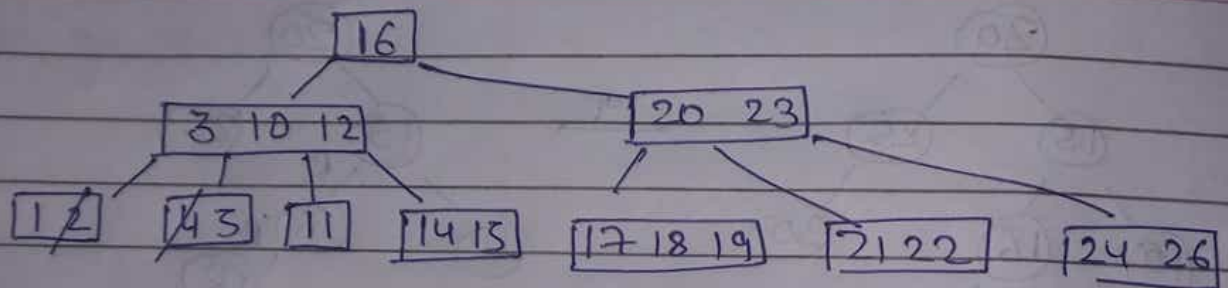 16
3 10 12 20 23
1 2 4 5 11 14 15 17 18 19 21 22 24 26